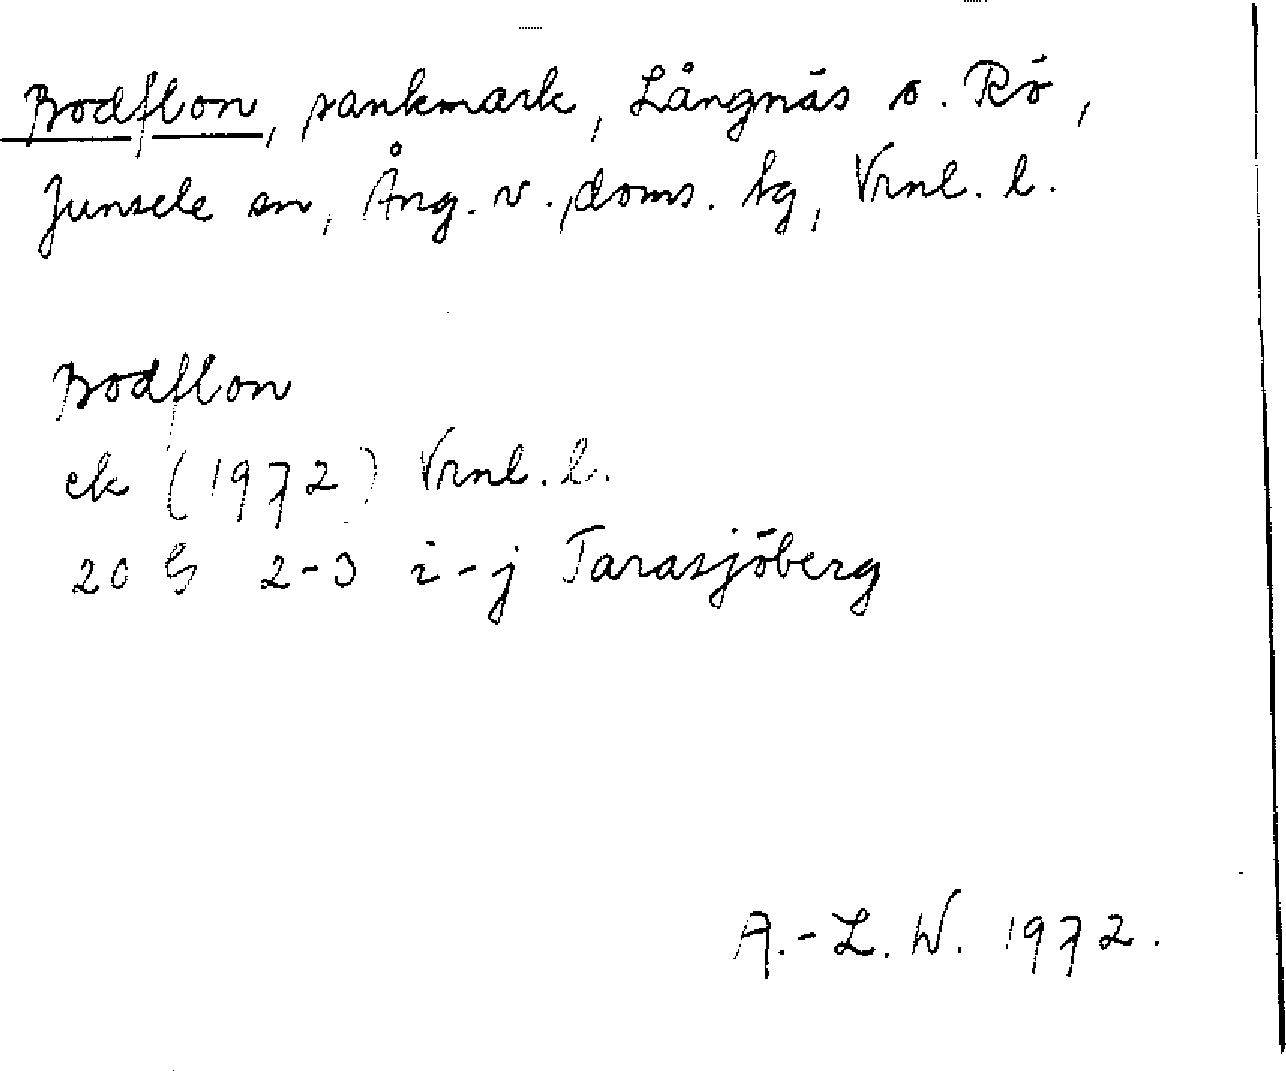 Bodflon, sankmark, Långnäs o. Rö,
Junsele sn, Ång. v. doms. tg, Vrnl. l.
Bodflon
ek (1972) Vrnl. l.
20 G 2-3 i-j Tarasjöberg
A.-L. W. 1972.